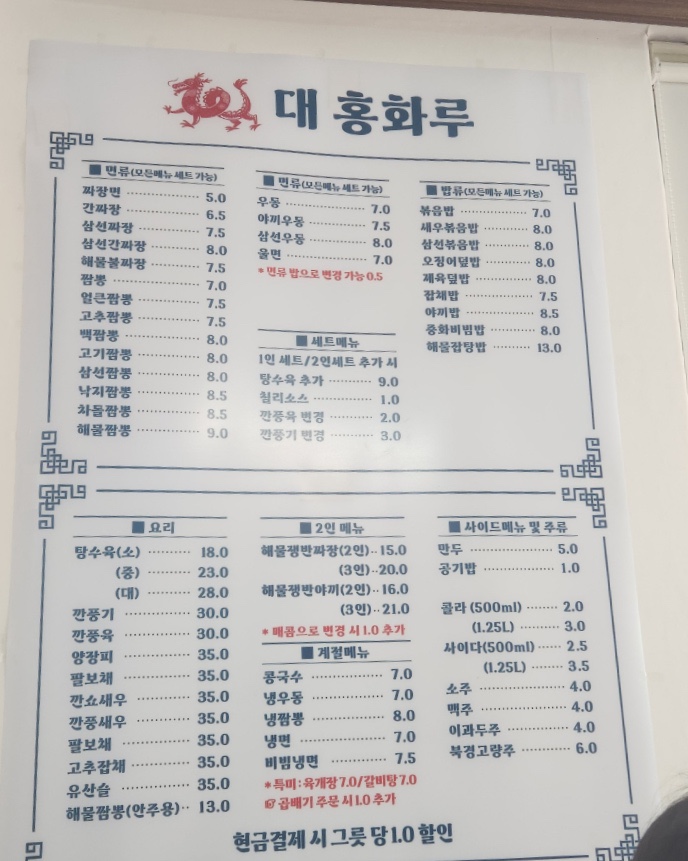 대 홍화루
■ 면류(모든메뉴 세트 가능)
짜장면 5.0
간짜장 6.5
삼선짜장 7.5
삼선간짜장 8.0
해물불짜장 7.5
짬뽕 7.0
얼큰짬뽕 7.5
고추짬뽕 7.5
백짬뽕 8.0
고기짬뽕 8.0
삼선짬뽕 8.0
낙지짬뽕 8.5
차돌짬뽕 8.5
해물짬뽕 9.0
■ 면류(모든메뉴 세트 가능)
우동 7.0
야끼우동 7.5
삼선우동 8.0
울면 7.0
* 면류 밥으로 변경 가능 0.5
■ 세트메뉴
1인 세트/2인세트 추가 시
탕수육 추가 9.0
칠리소스 1.0
깐풍육 변경 2.0
깐풍기 변경 3.0
■ 밥류(모든메뉴 세트 가능)
볶음밥 7.0
새우볶음밥 8.0
삼선볶음밥 8.0
오징어덮밥 8.0
제육덮밥 8.0
잡채밥 7.5
야끼밥 8.5
중화비빔밥 8.0
해물잡탕밥 13.0
■ 요리
탕수육(소) 18.0
(중) 23.0
(대) 28.0
깐풍기 30.0
깐풍육 30.0
양장피 35.0
팔보채 35.0
깐쇼새우 35.0
깐풍새우 35.0
팔보채 35.0
고추잡채 35.0
유산슬 35.0
해물짬뽕(안주용) 13.0
■ 2인 메뉴
해물쟁반짜장(2인) 15.0
(3인) 20.0
해물쟁반야끼(2인) 16.0
(3인) 21.0
* 매콤으로 변경 시 1.0 추가
■ 계절메뉴
콩국수 7.0
냉우동 7.0
냉짬뽕 8.0
냉면 7.0
비빔냉면 7.5
* 특미 : 육개장 7.0/갈비탕 7.0
☞ 곱배기 주문 시 1.0 추가
■ 사이드메뉴 및 주류
만두 5.0
공기밥 1.0
콜라 (500ml) 2.0
(1.25L) 3.0
사이다(500ml) 2.5
(1.25L) 3.5
소주 4.0
맥주 4.0
이과두주 4.0
북경고량주 6.0
현금결제 시 그릇 당 1.0 할인